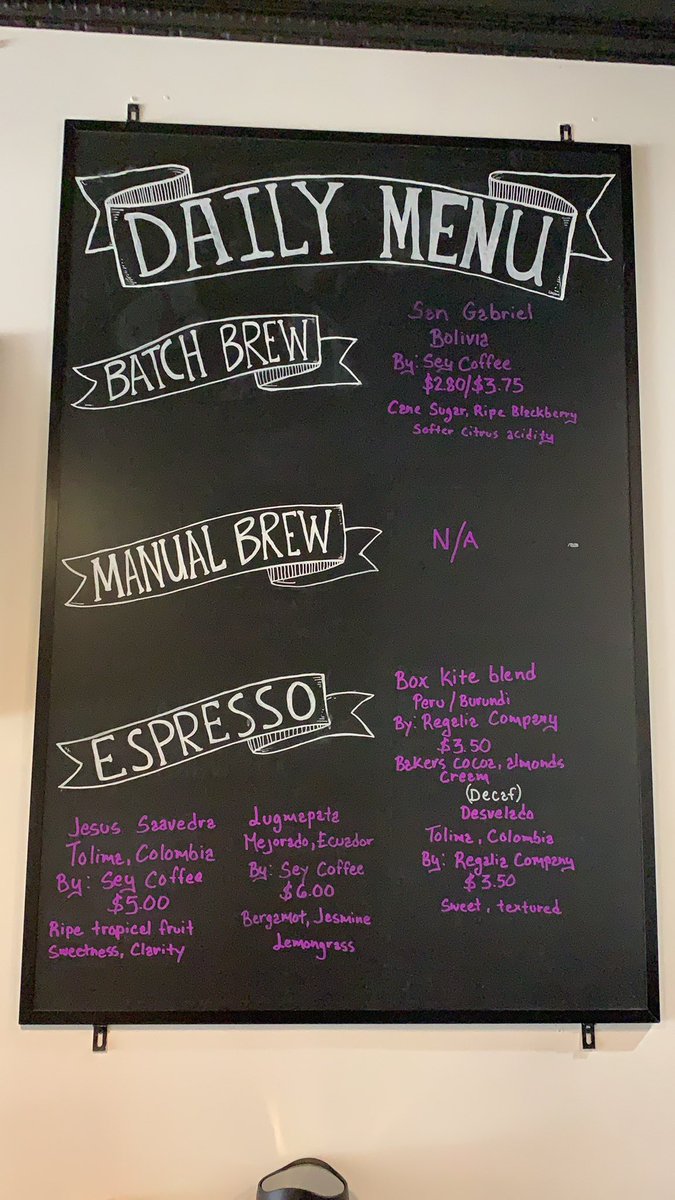 DAILY MENU
BATCH BREW
San Gabriel
Bolivia
By: Sey Coffee
$2.80/$3.75
Cane Sugar, Ripe Blackberry
Softer Citrus acidity
MANUAL BREW
N/A
ESPRESSO
Box Kite blend
Peru/Burundi
By: Regalia Company
$3.50
Bakers cocoa, almonds
Cream
(Decaf)
Desvelado
Tolima, Colombia
By: Regalia Company
$3.50
Sweet, textured
Jesus Saavedra
Tolima, Colombia
By: Sey Coffee
$5.00
Ripe tropical fruit
Sweetness, Clarity
Lugmapata
Mejorado, Ecuador
By: Sey Coffee
$6.00
Bergamot, Jasmine
Lemongrass